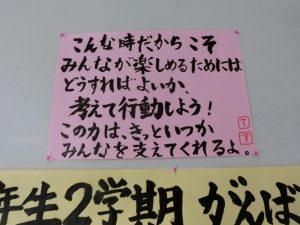 こんな時だからこそ
みんなが楽しめるためには
どうすればよいか、
考えて行動しよう！
この力は、きっといつか
みんなを支えてくれるよ。
年生2学期 がんば